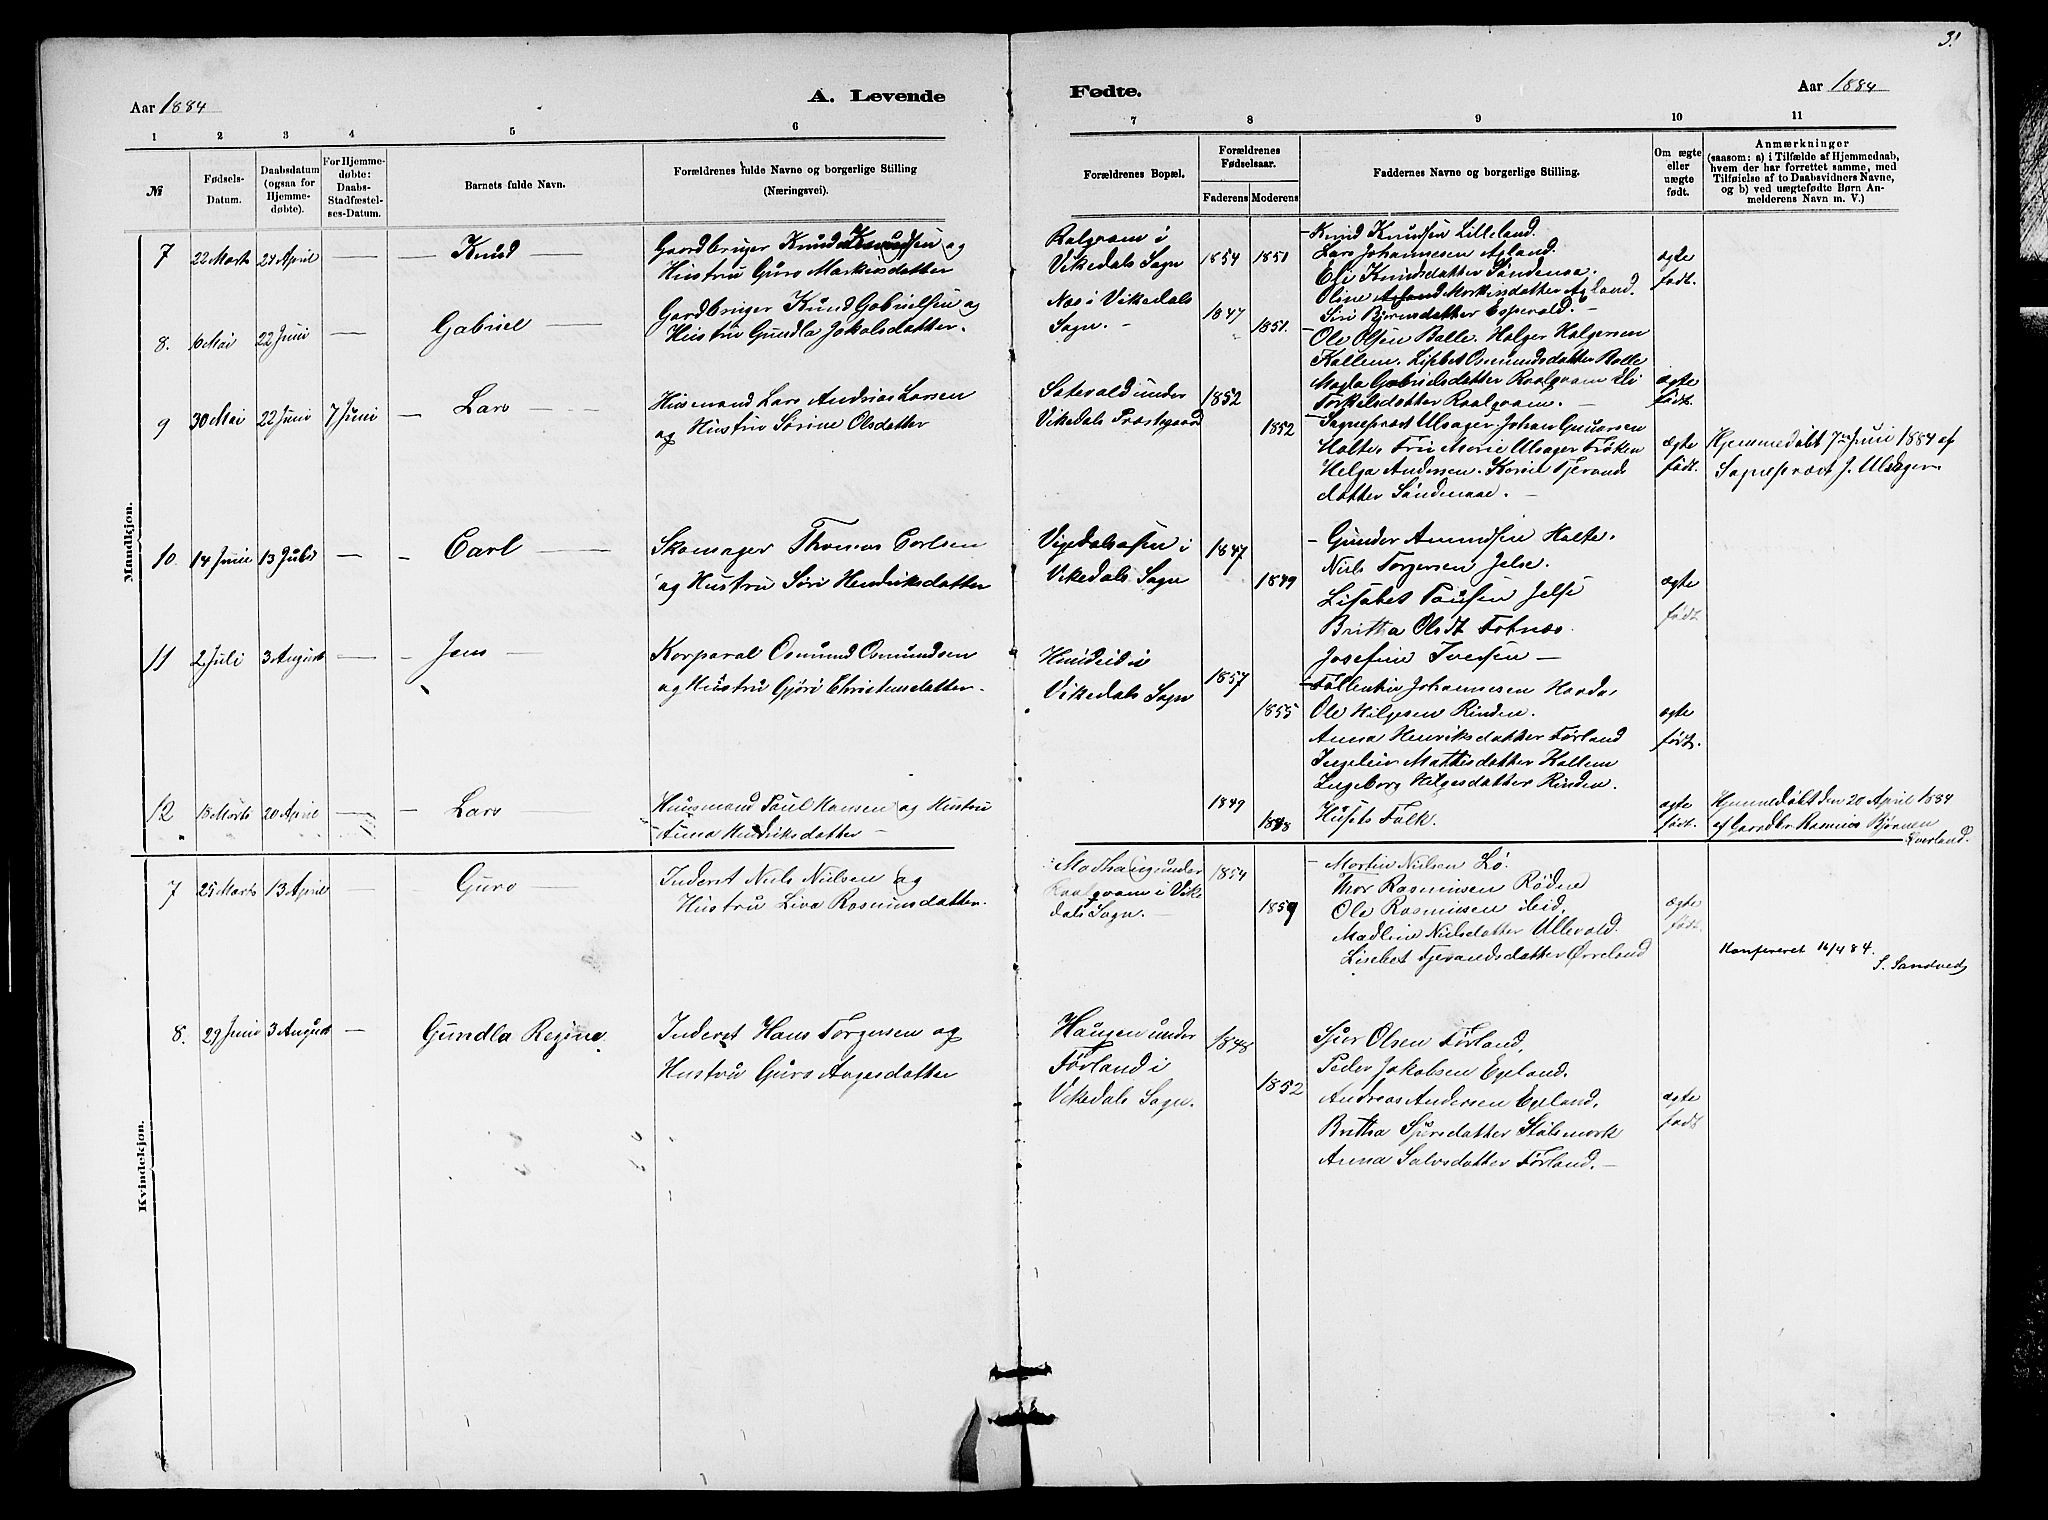 3.
Aar 1884
A. Levende
Fødte.
Aar 1884
1 2 3 4 5 6
7 8 9 10 11
№
Fødsels-
Datum.
Daabsdatum
(ogsaa for
Hjemme-
døbte).
For Hjemme-
døbte:
Daabs-
Stadfæstel-
ses-Datum.
Barnets fulde Navn.
Forældrenes fulde Navne og borgerlige Stilling
(Næringsvei).
Forældrenes Bopæl.
Forældrenes
Fødselsaar.
Faderens Moderens
Faddernes Navne og borgerlige Stilling.
Om ægte
eller
uægte
født.
Anmærkninger
(saasom: a) i Tilfælde af Hjemmedaab,
hvem der har forrettet samme, med
Tilføielse af to Daabsvidners Navne,
og b) ved uægtefødte Børn An-
melderens Navn m. V.)
Mandkjøn.
7 22 Marts 24 April — — Knud
Gaardbruger Knud Knudsen og
Hustru Guro Markusdatter
Raalgvam i
Vikedals Sogn
1854 1851
Knud Knudsen Lilleland.
Lars Johannesen Aaland.
Eli Knudsdatter Søndenaa.
Oline Mortensdatter Aaland.
Siri Bjørnsdatter Espevold. —
ægte
født.
8. 6 Mai 22 Juni — Gabriel —
Gardbruger Knud Gabrielsen og
Hustru Gundla Jakobsdatter.
Næs i Vikedals
Sogn. —
1847 1851.
Ole Olsen Balle. Holger Holgersen
Kallem. Lisbet Osmundsdatter Balle
Magla Gabrielsdatter Raalgvam Eli
Torkelsdatter Raalgvam. —
ægte
født.
9 30 Mai 22 Juni 7 Juni — Lars —
Husmand Lars Andreas Larsen
og Hustru Sørine Olsdatter
Sætevold under
Vikedals Præstegaard
1852 1852
Sognepræst Ulsager Johan Gunarsen
Holte. Fru Marie Ulsager Frøken
Helga Andersen. Karine Tjerand
datter Søndenaae. —
ægte
født.
Hjemmedøbt 7de Juni 1884 af
Sognepræst J. Ulsager.
10 14 Juni 13 Juli — — Carl —
Skomager Thomas Carlsen
og Hustru Siri Hendriksdatter
Vigedalsøsen i
Vikedals Sogn
1847 1849
Gunder Amundsen Holte.
Niels Torgersen Jelse.
Lisabet Paulsen Jelse
Britha Olsdt Fotnæs.
Josefine Iversen —
ægte
født
11 2 Juli 3 August — — Jens —
Korporal Osmund Osmundsen
og Hustru Gjøri Christensdatter.
Hundeid i
Vikedals Sogn
1857 1855
Fallentin Johannesen Haada,
Ole Helgesen Rinden.
Anna Henriksdatter Førland
Ingeleiv Mathisdatter Kallem
Ingeborg Helgesdatter Rinden.
ægte
født.
12 18 Marts 20 April — — Lars —
Huusmand Paul Hansen og Hustru
Anna Hendriksdatter —
1849 1848
Husets Folk.
ægte
født.
Hjemmedøbt den 20 April 1884
af Gaardbr Rasmus Bjørnsen
Kvedland.
Kvindekjøn.
7 25 Marts 13 April — Guro —
Inderst Niels Nielsen og
Hustru Liva Rasmusdatter.
under
Raalgvam i Vike
dals Sogn. —
1854 1859
Martin Nielsen Lø.
Thor Rasmussen Rødne
Ole Rasmussen ibid,
Madline Nielsdatter Ullevold.
Lisebet Tjerandsdatter Ørreland
ægte
født.
Konfereret 16/4 84.
S. Sandved
8. 29 Juni 3 August — Gundla Regine.
Inderst Hans Torgersen og
Hustru Guro Aagesdatter
Haugen under
Førland i
Vikedals Sogn.
1848 1852
Sjur Olsen Førland,
Peder Jakobsen Egeland.
Andreas Andersen Egeland,
Britha Sjursdatter Stølsmark
Anna Salvsdatter Førland. —
ægte
født